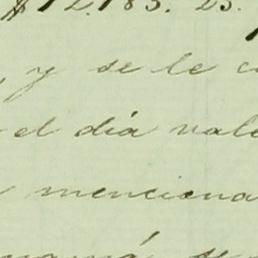 $12.183.23.
, y se le c
el día vale
menciona